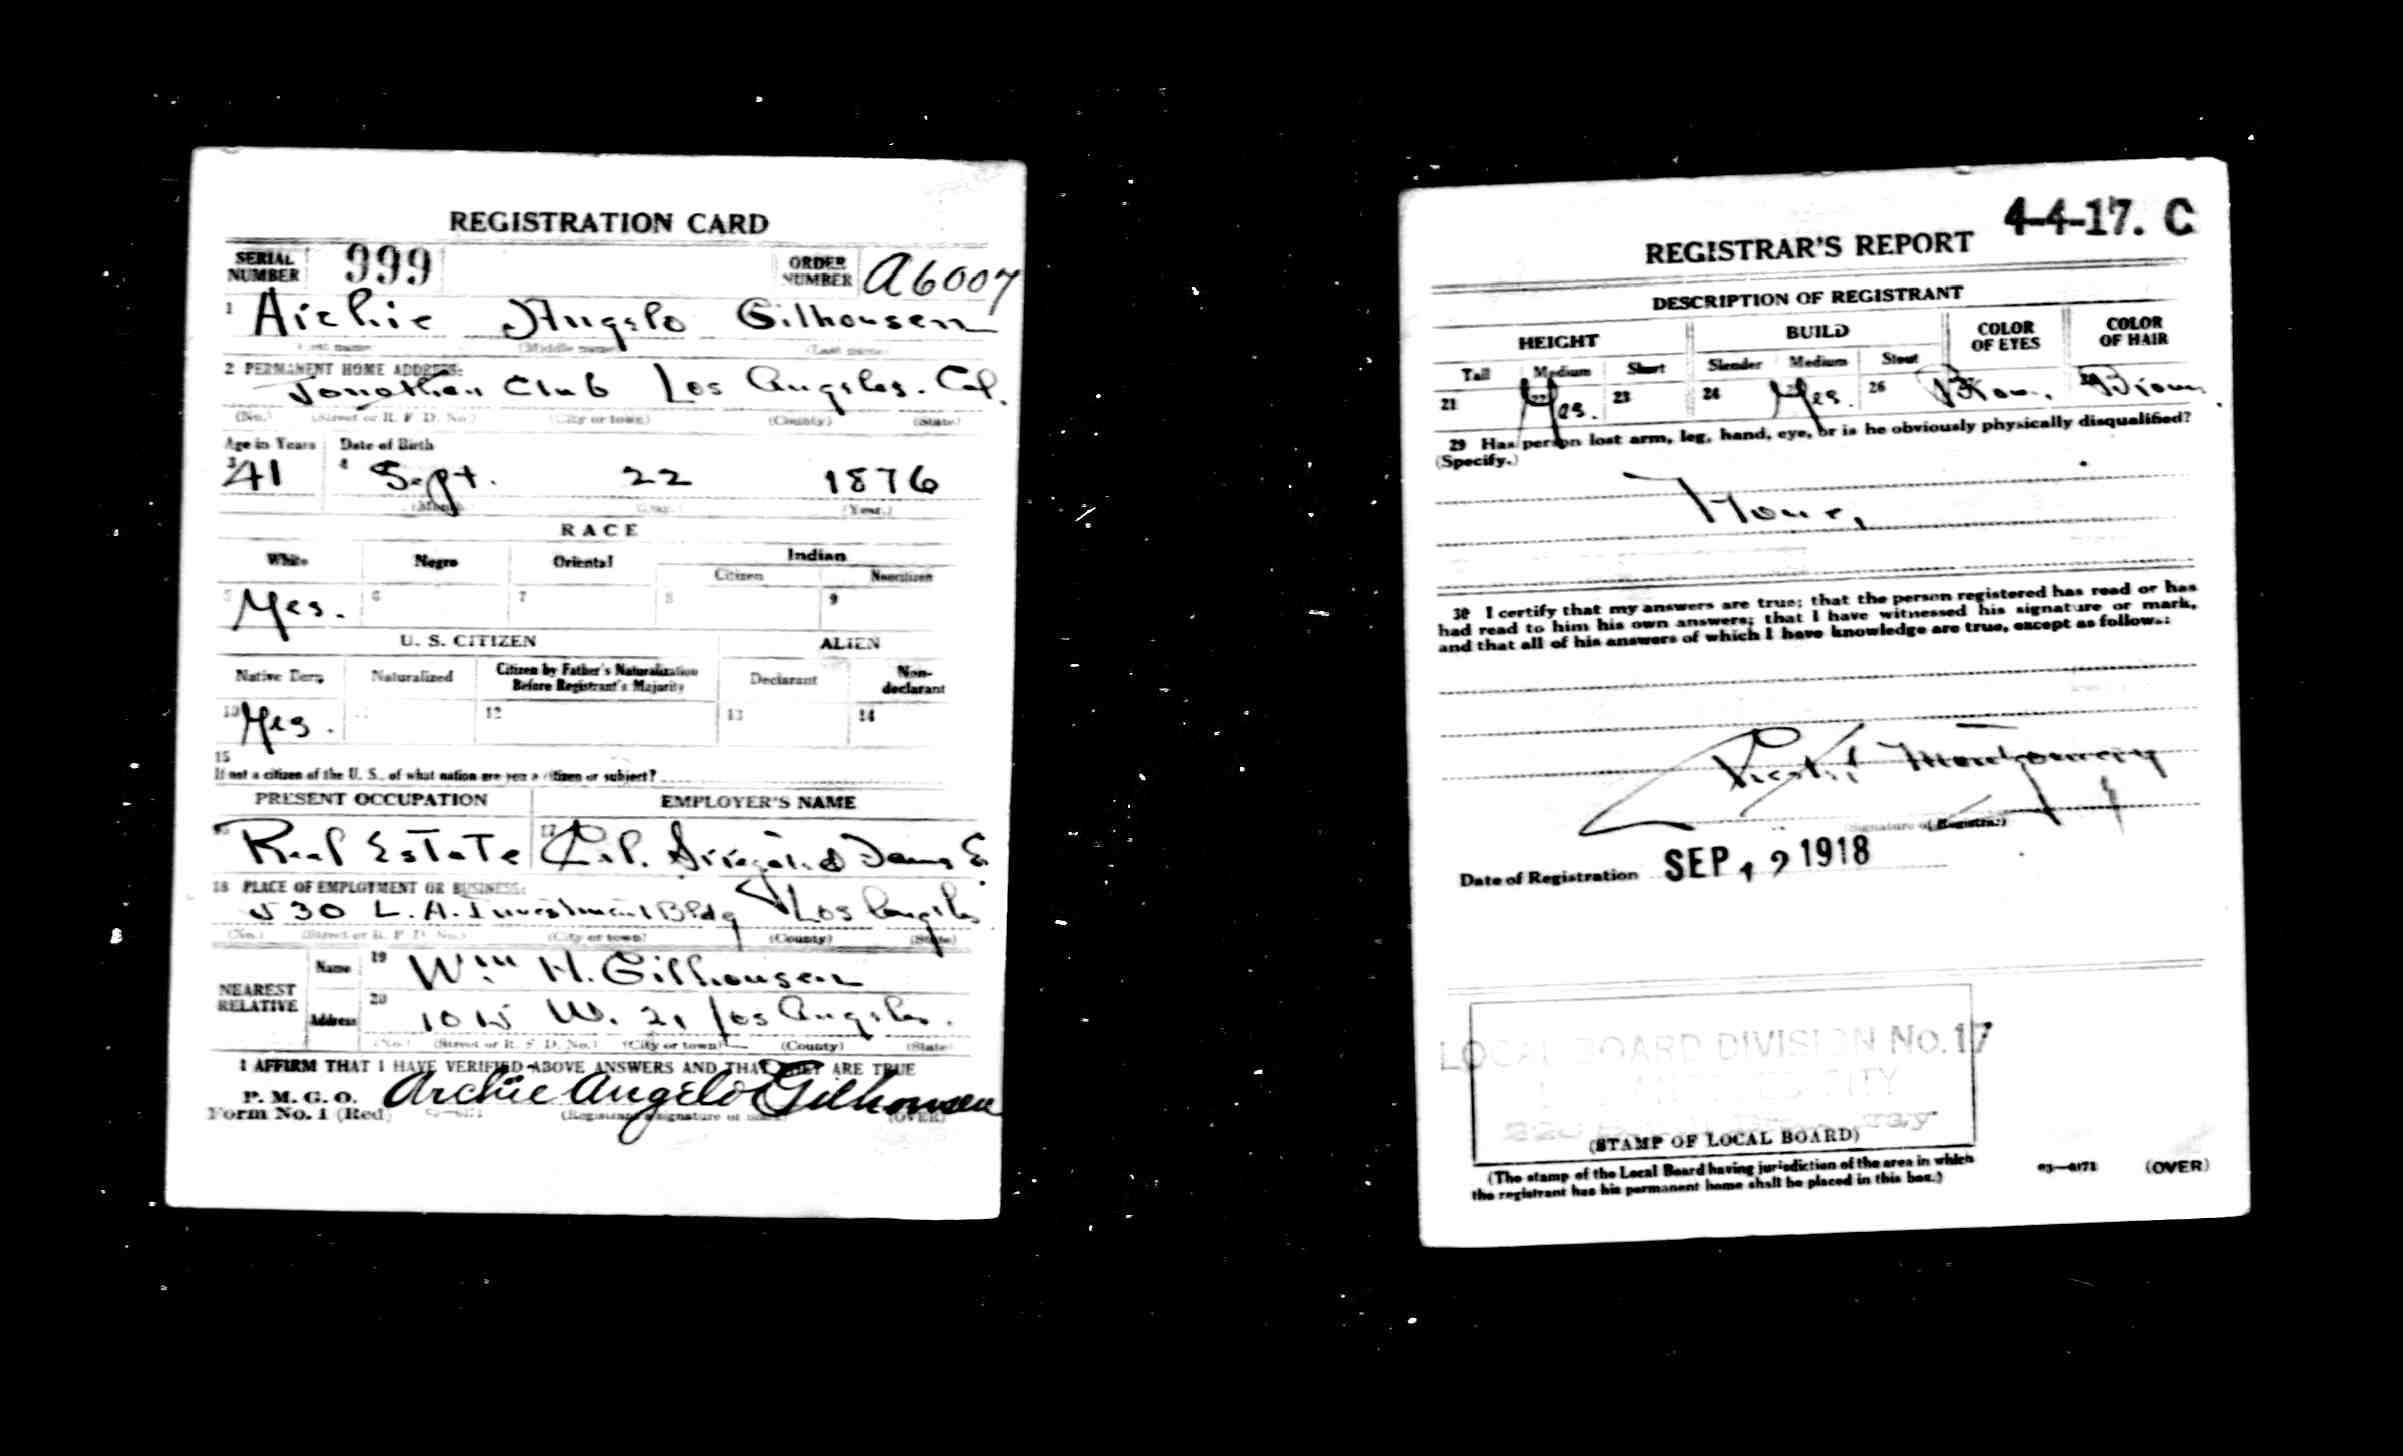 REGISTRATION CARD
SERIAL NUMBER 999 ORDER NUMBER A6007
1 Archie Angelo Gilhousen
(First name) (Middle name) (Last name)
2 PERMANENT HOME ADDRESS:
Jonathan Club Los Angeles. Cal.
(No.) (Street or R. F. D. No.) (City or town) (County) (State)
Age in Years Date of Birth
3 41 4 Sept. 22 1876
(Month.) (Day.) (Year.)
RACE
White Negro Oriental Indian
Citizen Noncitizen
5 Yes. 6 7 8 9
U. S. CITIZEN ALIEN
Native Born Naturalized Citizen by Father's Naturalization Before Registrant's Majority Declarant Non-declarant
10 Yes. 11 12 13 14
15
If not a citizen of the U. S., of what nation are you a citizen or subject?
PRESENT OCCUPATION EMPLOYER'S NAME
16 Real Estate 17 Cal.
18 PLACE OF EMPLOYMENT OR BUSINESS:
530 L. A. Investment Bldg Los Angeles
(No.) (Street or R. F. D. No.) (City or town) (County) (State)
NEAREST RELATIVE
Name 19 Wm H. Gilhousen
Address 20 W. 21 Los Angeles.
(No.) (Street or R. F. D. No.) (City or town) (County) (State)
I AFFIRM THAT I HAVE VERIFIED ABOVE ANSWERS AND THAT THEY ARE TRUE
P. M. G. O.
Form No. 1 (Red) 03-6171 Archie Angelo Gilhousen
(Registrant's signature or mark) (OVER)
4-4-17. C
REGISTRAR'S REPORT
DESCRIPTION OF REGISTRANT
HEIGHT BUILD COLOR OF EYES COLOR OF HAIR
Tall Medium Short Slender Medium Stout
21 22 Yes. 23 24 Yes. 26 Brown. Brown
29 Has person lost arm, leg, hand, eye, or is he obviously physically disqualified?
(Specify.)
None,
30 I certify that my answers are true; that the person registered has read or has
had read to him his own answers; that I have witnessed his signature or mark,
and that all of his answers of which I have knowledge are true, except as follows:
Montgomery
(Signature of Registrar)
Date of Registration SEP 12 1918
LOCAL BOARD DIVISION No. 17
CITY
(STAMP OF LOCAL BOARD)
(The stamp of the Local Board having jurisdiction of the area in which
the registrant has his permanent home shall be placed in this box.)
03-6171 (OVER)